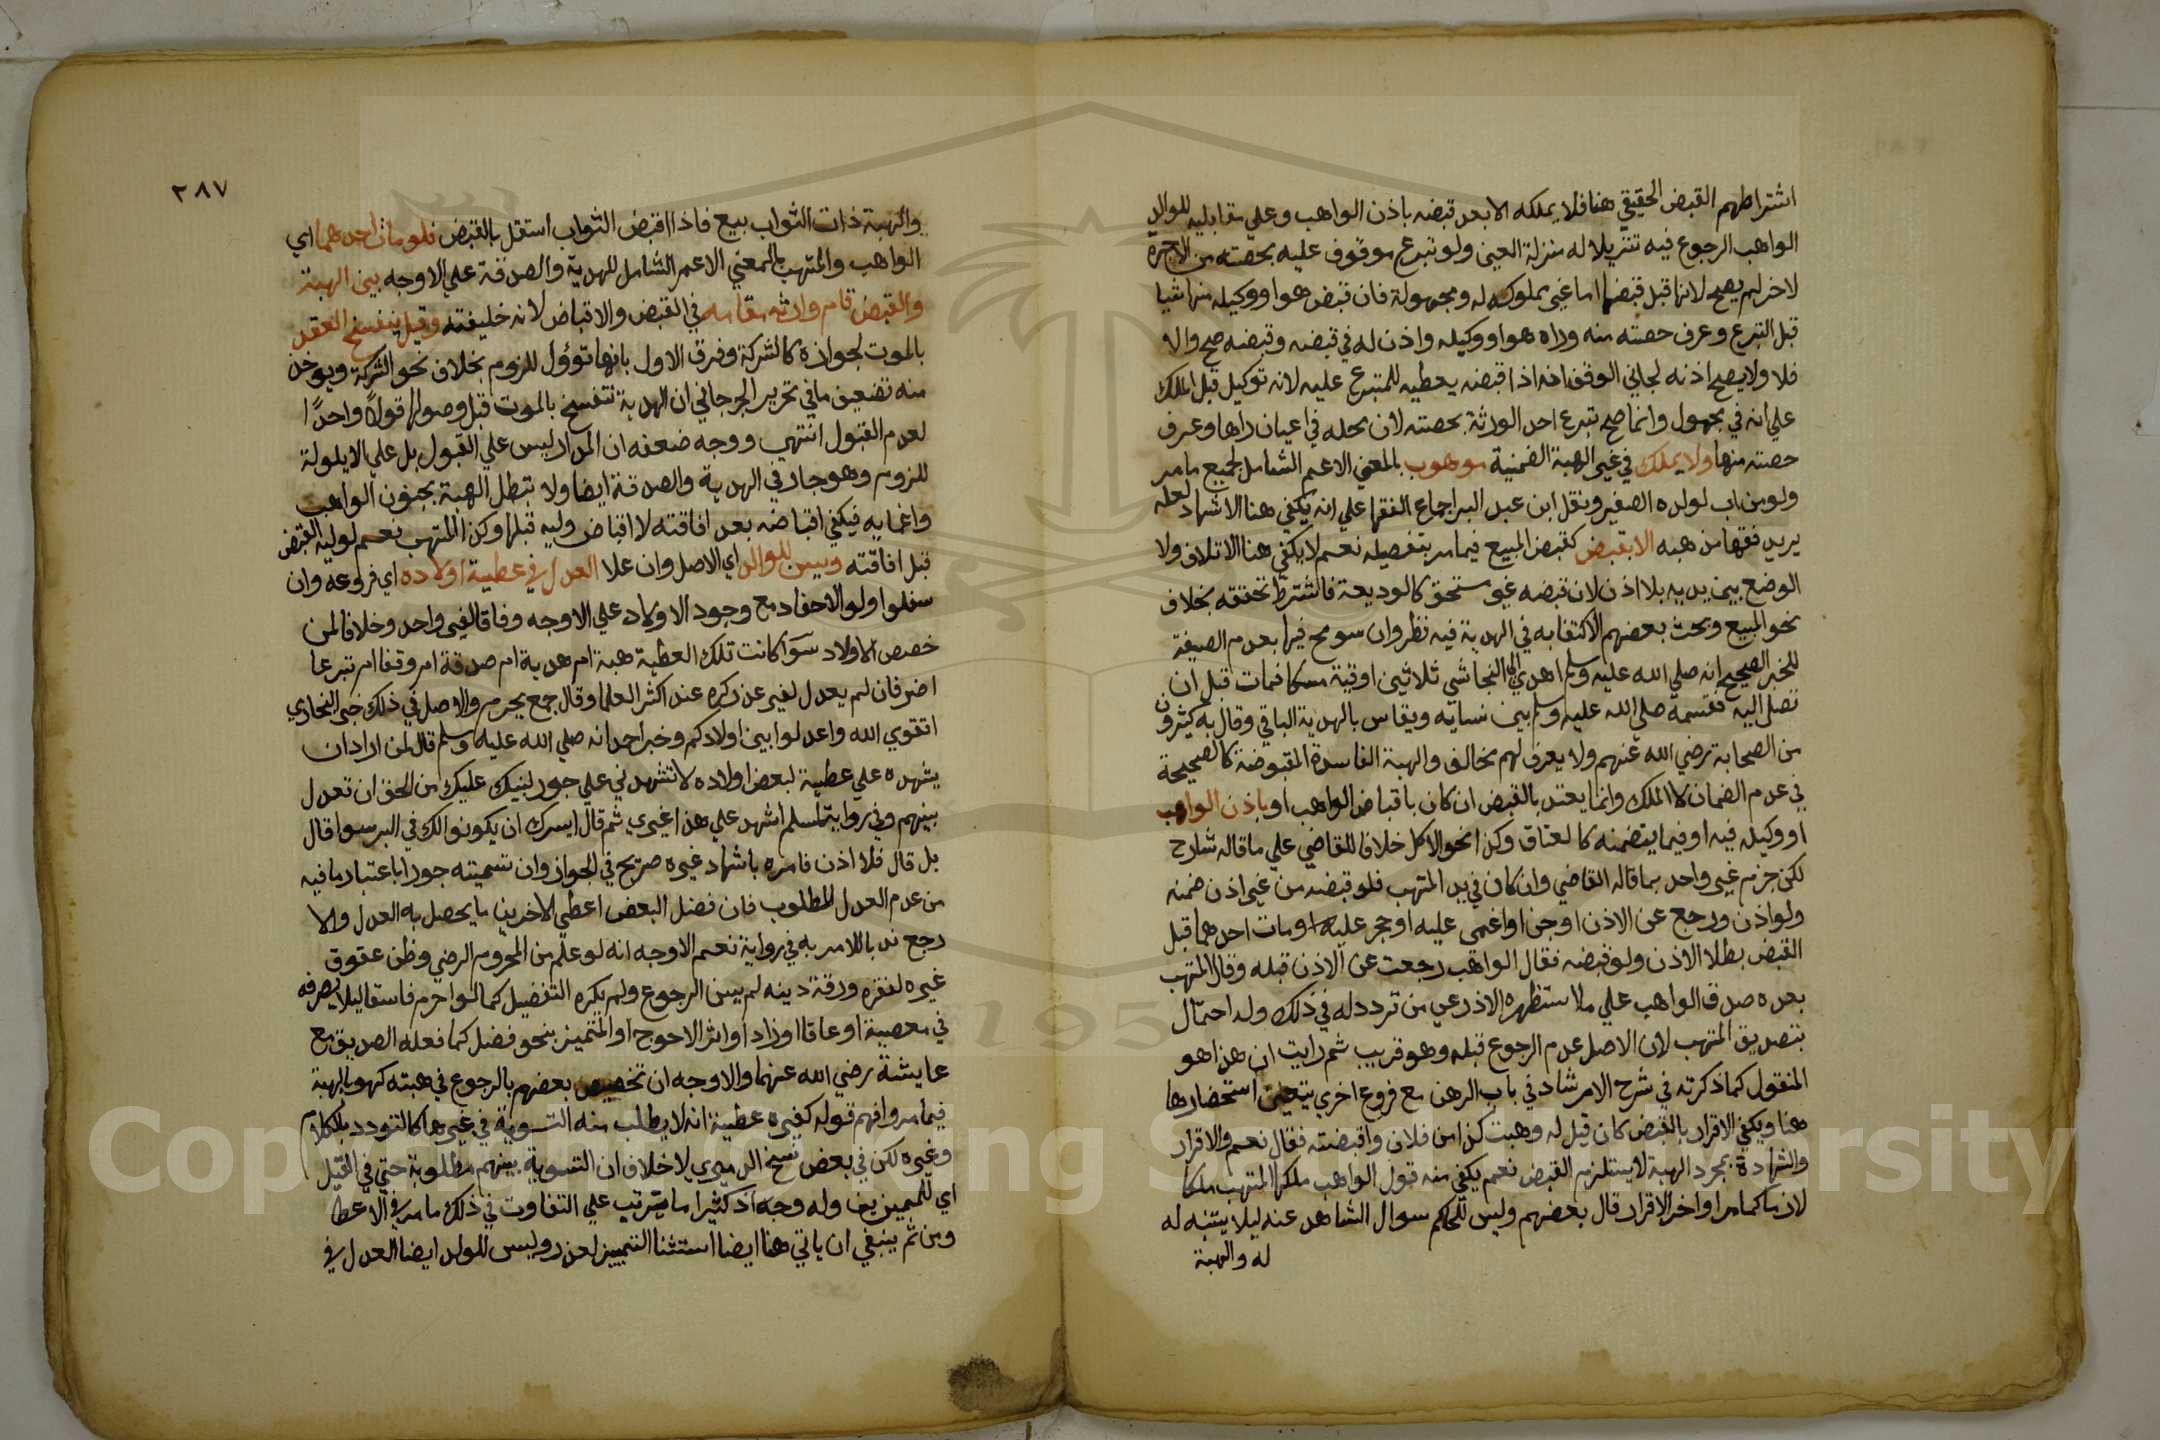 اشتراطهم القبض الحقيقي هنا فلا يملكه الا بعد قبضه باذن الواهب وعلي مقابليه للوالد
الواهب الرجوع فيه تنزيلا له منزلة العين ولو تبرع موقوف عليه بحصته من الاجرة
لاخر لم يصح لانها قبل قبضها اما غير مملوكه له ومجهولة فان قبض هوا ووكيله منها شيا
قبل التبرع وعرف حصته منه وراه هوا ووكيله واذن له في قبضه وقبضه صح والا
فلا ولا يصح اذنه لجابي الوقف انه اذا قبضه يعطيه للمتبرع عليه لانه توكيل قبل الملك
علي انه في مجهول وانما صح تبرع احد الورثة بحصته لان محله في اعيان راها وعرف
حصته منها ولا يملك في غير الهبة الضمنية موهوب بالمعني الاعم الشامل لجميع ما مر
ولو من اب لولده الصغير ونقل ابن عبد البر اجماع الفقها علي انه يكفي هنا الاشهاد لعله
يريد فقها مذهبه الا بقبض كقبض المبيع فيما مر بتفصيله نعم لا يكفي هنا الاتلاف ولا
الوضع بين يديه بلا اذن لان قبضه غير مستحق كالوديعة فاشترط تحققه بخلاف
نحو المبيع وبحث بعضهم الاكتفا به في الهدية فيه نظر وان سومح فيها بعدم الصيغة
للخبر الصحيح انه صلي الله عليه وسلم اهدي الي النجاشي ثلاثين اوقية مسكا فمات قبل ان
تصل اليه فقسمه صلي الله عليه وسلم بين نسايه ويقاس بالهدية الباقي وقال به كثيرون
من الصحابة رضي الله عنهم ولا يعرف لهم مخالف والهبة الفاسدة المقبوضة كالصحيحة
في عدم الضمان لا الملك وانما يعتد بالقبض ان كان باقباض الواهب او باذن الواهب
او وكيله فيه او فيما يتضمنه كالعتاق وكذا نحو الاكل خلافا للقاضي علي ما قاله شارح
لكن جزم غير واحد بما قاله القاضي وان كان في يد المتهب فلو قبضه من غير اذن ضمنه
ولو اذن ورجع عن الاذن او جن او اغمي عليه او حجر عليه او مات احدهما قبل
القبض بطل الاذن ولو قبضه فقال الواهب رجعت عن الاذن قبله وقال المتهب
بعده صدق الواهب علي ما استظهره الاذرعي من تردد له في ذلك وله احتمال
بتصديق المتهب لان الاصل عدم الرجوع قبله وهو قريب ثم رايت ان هذا هو
المنقول كما ذكرته في شرح الارشاد في باب الرهن مع فروع اخري يتعين استحضارها
هنا ويكفي الاقرار بالقبض كان قيل له وهبت كذا من فلان واقبضته فقال نعم والاقرار
والشهادة بمجرد الهبة لا يستلزم القبض نعم يكفي منه قول الواهب ملكها المتهب ملكا
لازما كما مر اواخر الاقرار قال بعضهم وليس للحاكم سوال الشاهد عنه ليلا يتنبه له
له والهبة
٣٨٧
والهبة ذات الثواب بيع فاذا اقبض الثواب استقل بالقبض فلو مات احدهما اي
الواهب والمتهب بالمعني الاعم الشامل للهدية والصدقة علي الاوجه بين الهبة
والقبض قام وارثه مقامه في القبض والاقباض لانه خليفته وقيل ينفسخ العقد
بالموت لجوازه كالشركة وفرق الاول بانها تؤول للزوم بخلاف نحو الشركة ويوخذ
منه تضعيف ما في تحرير الجرجاني ان الهدية تنفسخ بالموت قبل وصولها قولا واحدا
لعدم القبول انتهي ووجه ضعفه ان المدار ليس علي القبول بل علي الايلولة
للزوم وهو جار في الهدية والصدقة ايضا ولا تبطل الهبة بجنون الواهب
واغمايه فيكفي اقباضه بعد افاقته لا اقباض وليه قبلها وكذا المتهب نعم لوليه القبض
قبل افاقته ويسن للوالد اي الاصل وان علا العدل في عطية اولاده اي فروعه وان
سفلوا ولو الاحفاد مع وجود الاولاد علي الاوجه وفاقا لغير واحد وخلافا لمن
خصص الاولاد سوا كانت تلك العطية هبة ام هدية ام صدقة ام وقفا ام تبرعا
اخر فان لم يعدل لغير عذر كره عند اكثر العلما وقال جمع يحرم والاصل في ذلك خبر البخاري
اتقوي الله واعدلوا بين اولادكم وخبر احمد انه صلي الله عليه وسلم قال لمن اراد ان
يشهده علي عطية لبعض اولاده لا تشهدني علي جور لبنيك عليك من الحق ان تعدل
بينهم وفي رواية لمسلم اشهد علي هذا غيري ثم قال ايسرك ان يكونوا لك في البر سوا قال
بل قال فلا اذن فامره باشهاد غيره صريح في الجواز وان تسميته جورا باعتبار ما فيه
من عدم العدل المطلوب فان فضل البعض اعطي الاخرين ما يحصل به العدل والا
رجع ندبا للامر به في رواية نعم الاوجه انه لو علم من المحروم الرضي وظن عقوق
غيره لفقره ورقة دينه لم يسن الرجوع ولم يكره التفضيل كما لو احرم فاسقا ليلا يصرفه
في معصية او عاقا او زاد او اثر الاحوج او المتميز بنحو فضل كما فعله الصديق مع
عايشة رضي الله عنهما والاوجه ان تخصيص بعضهم بالرجوع في هبته كهو بالهبة
فيما مر وافهم قوله كغيره عطية انه لا يطلب منه التسوية في غيرها كالتودد بالكلام
وغيره لكن في بعض نسخ الدميري لا خلاف ان التسوية بينهم مطلوبة حتي في القبل
اي للمميزين وله وجه اذ كثيرا ما يترتب علي التفاوت في ذلك ما مر في الاعطا
ومن ثم ينبغي ان ياتي هنا ايضا استثنا التمييز لعذر وليس للولد ايضا العدل في